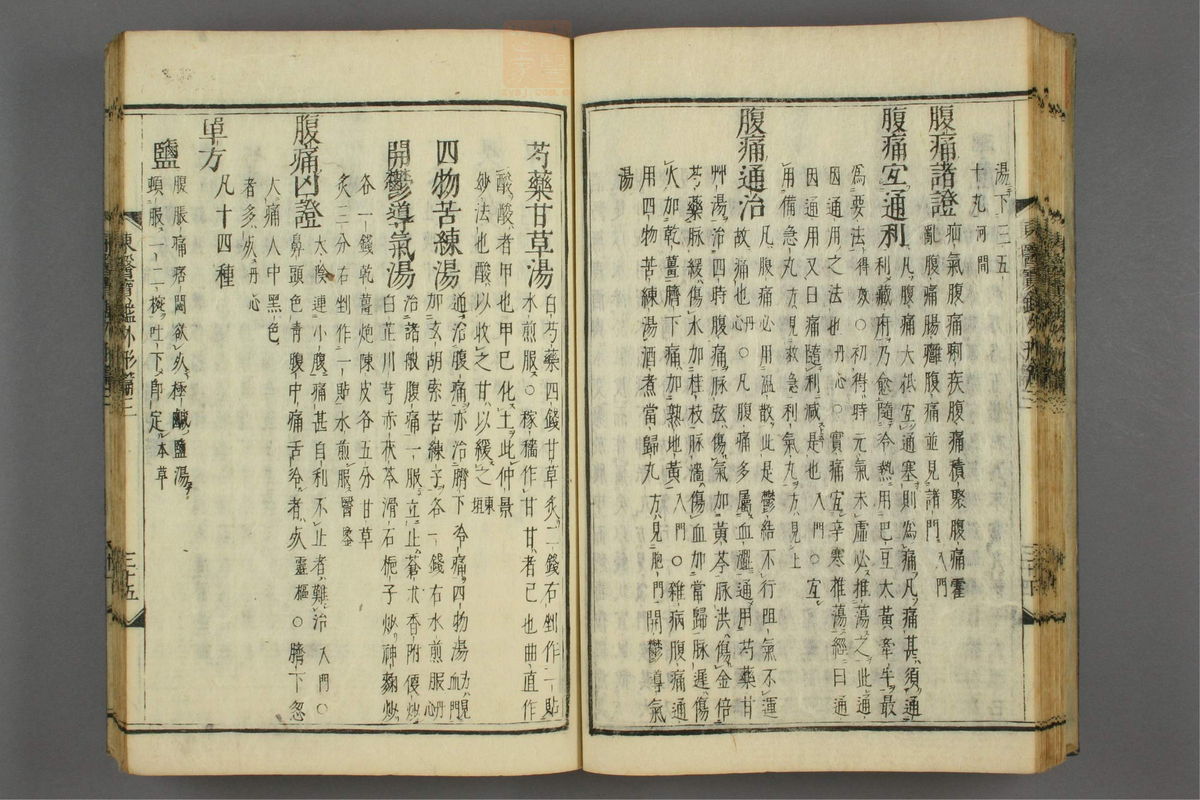 湯下三五
十丸河間
腹痛諸證 疝氣腹痛痢疾腹痛積聚腹痛霍
亂腹痛腸癰腹痛並見諸門入門
腹痛宜通利 凡腹痛大抵宜通塞則爲痛凡痛甚須通
利藏府乃愈隨冷熱用巴豆大黃牽牛最
爲要法得效○初得時元氣未虛必推蕩之此通
因通用之法也丹心○實痛宜辛寒推蕩經曰通
因通用又曰痛隨利減是也入門○宜
用備急丸方見救急利氣丸方見上
腹痛通治 凡腹痛必用溫散此是鬱結不行阻氣不運
故痛也丹心○凡腹痛多屬血澀通用芍藥甘
艸湯治四時腹痛脉弦傷氣加黃芩脉洪傷金倍
芍藥脉緩傷水加桂枝脉濇傷血加當歸脉遲傷
火加乾薑臍下痛加熟地黃入門○雜病腹痛通
用四物苦練湯酒煮當歸丸方見胞門開鬱導氣
湯
芍藥甘草湯 白芍藥四錢甘草炙二錢右剉作一貼
水煎服○稼穡作甘甘者己也曲直作
酸酸者甲也甲己化土此仲景
妙法也酸以收之甘以緩之東垣
四物苦練湯 通治腹痛亦治臍下冷痛四物湯方見血門
加玄胡索苦練子各一錢右水煎服丹心
開鬱導氣湯 治諸般腹痛一服立止蒼朮香附便炒
白芷川芎赤茯苓滑石梔子炒神麴炒
各一錢乾薑炮陳皮各五分甘草
炙三分右剉作一貼水煎服醫鑑
腹痛凶證 大陰連小腹痛甚自利不止者難治入門○
鼻頭色靑腹中痛舌冷者死靈樞○臍下忽
大痛人中黑色
者多死丹心
單方 凡十四種
鹽 腹脹痛痞悶欲死極鹹鹽湯
頓服一二椀吐下卽定本草
東醫寶鑑外形篇三
三十五